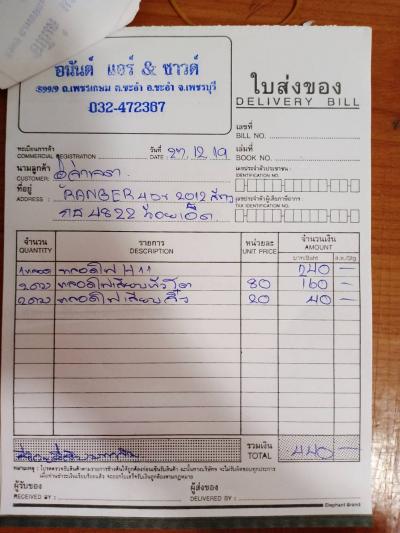 อนันต์ แอร์ & ซาวด์
899/9 ถ.เพชรเกษม ต.ชะอำ อ.ชะอำ จ.เพชรบุรี
032-472367
ใบส่งของ
DELIVERY BILL
เลขที่
BILL NO.
ทะเบียนการค้า
COMMERCIAL REGISTRATION
วันที่
DATE: 27.12.19
เล่มที่
BOOK NO.
นามลูกค้า
CUSTOMER:
เลขประจำตัวประชาชน
IDENTIFICATION NO.
ที่อยู่
ADDRESS: RANGER 4 2012
4822
เลขประจำตัวผู้เสียภาษีอากร
TAX IDENTIFICATION NO.
จำนวน
QUANTITY
รายการ
DESCRIPTION
หน่วยละ
UNIT PRICE
จำนวนเงิน
AMOUNT
บาท/Baht ส.ต./Stg
1 หลอด หลอดไฟ H11 240 -
2 ดวง หลอดไฟเสียบหัวโต 80 160 -
2 ดวง หลอดไฟเสียบจิ๋ว 20 40 -
สี่ร้อยสี่สิบบาทถ้วน
รวมเงิน
TOTAL 440 -
หมายเหตุ : โปรดตรวจรับสินค้าตามรายการข้างต้นให้ถูกต้องก่อนเซ็นรับสินค้า ฉะนั้นทางบริษัทฯ จะไม่รับผิดชอบทุกประการ
ผู้รับของ
RECEIVED BY
ผู้ส่งของ
DELIVERED BY
Elephant Brand